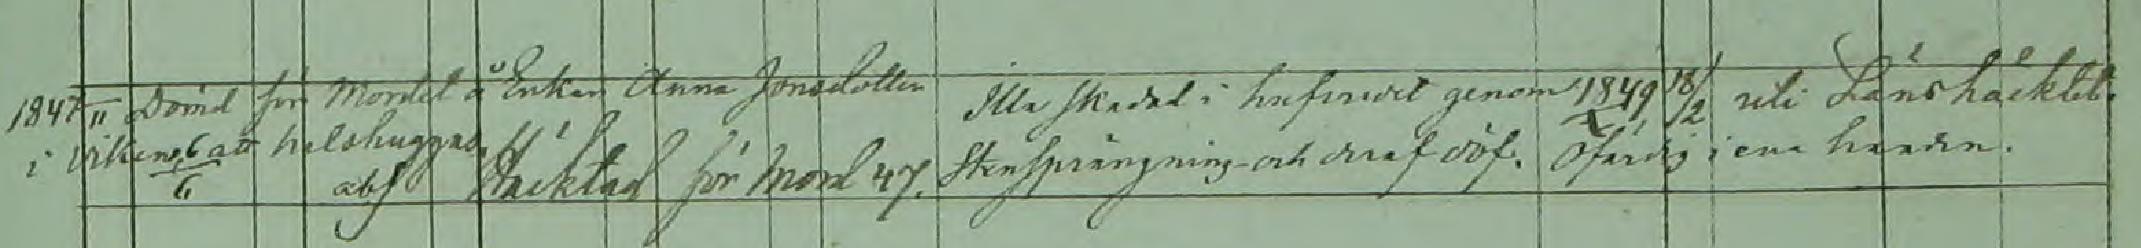 1847 11 Dömd för Mordet å Enkan Anna Jonsdotter Illa skadad i hufvudet genom 1849 18/2 uti Länshäcktet.
i Viken 6/6 att halshuggas. abs Häcktad för Mord 47. Stensprängning och deraf döf. Ofärdig i ena handen.